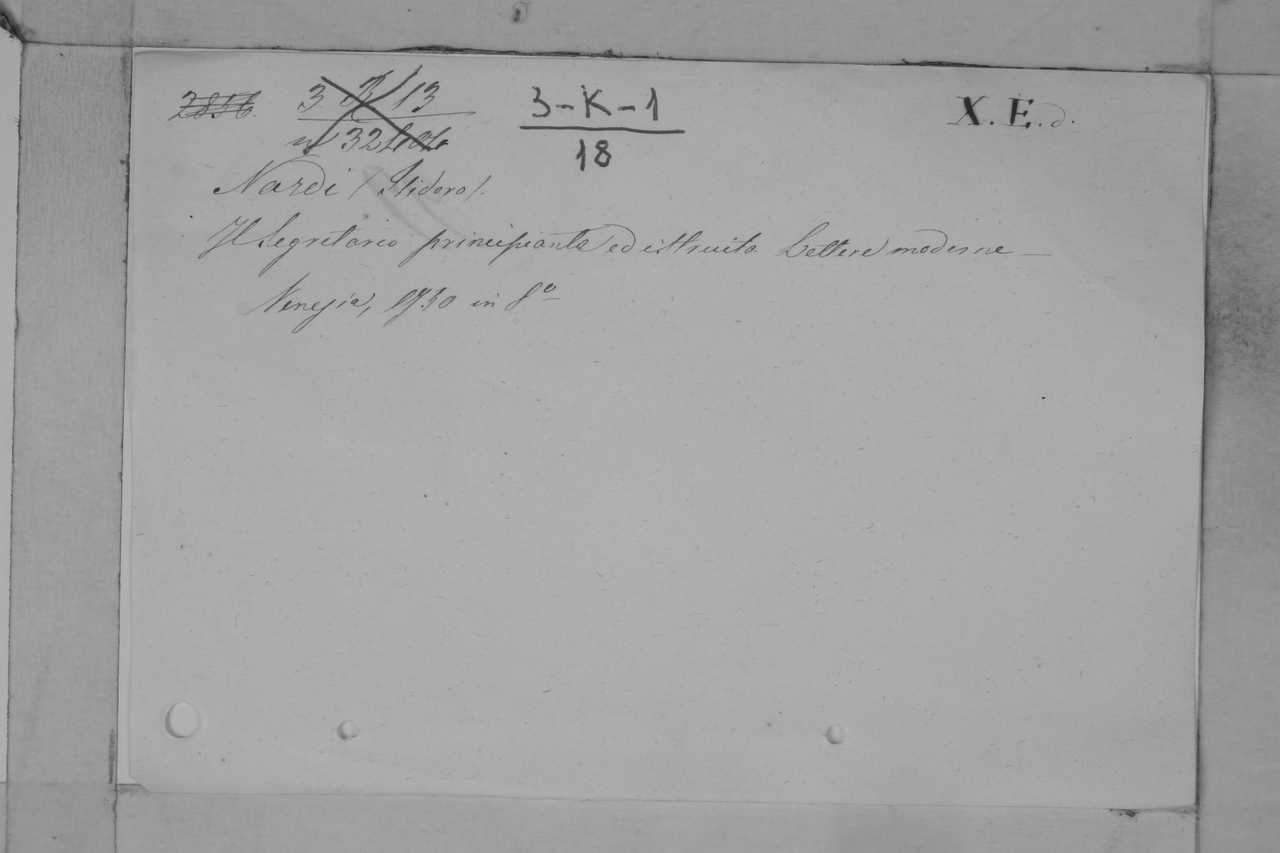 2856. 3 K 13 3-K-1 X.E.d.
n 32 18
Nardi (Isidoro).
Il Segretario principiante ed istruito. Lettere moderne —
Venezia, 1730 in 8º